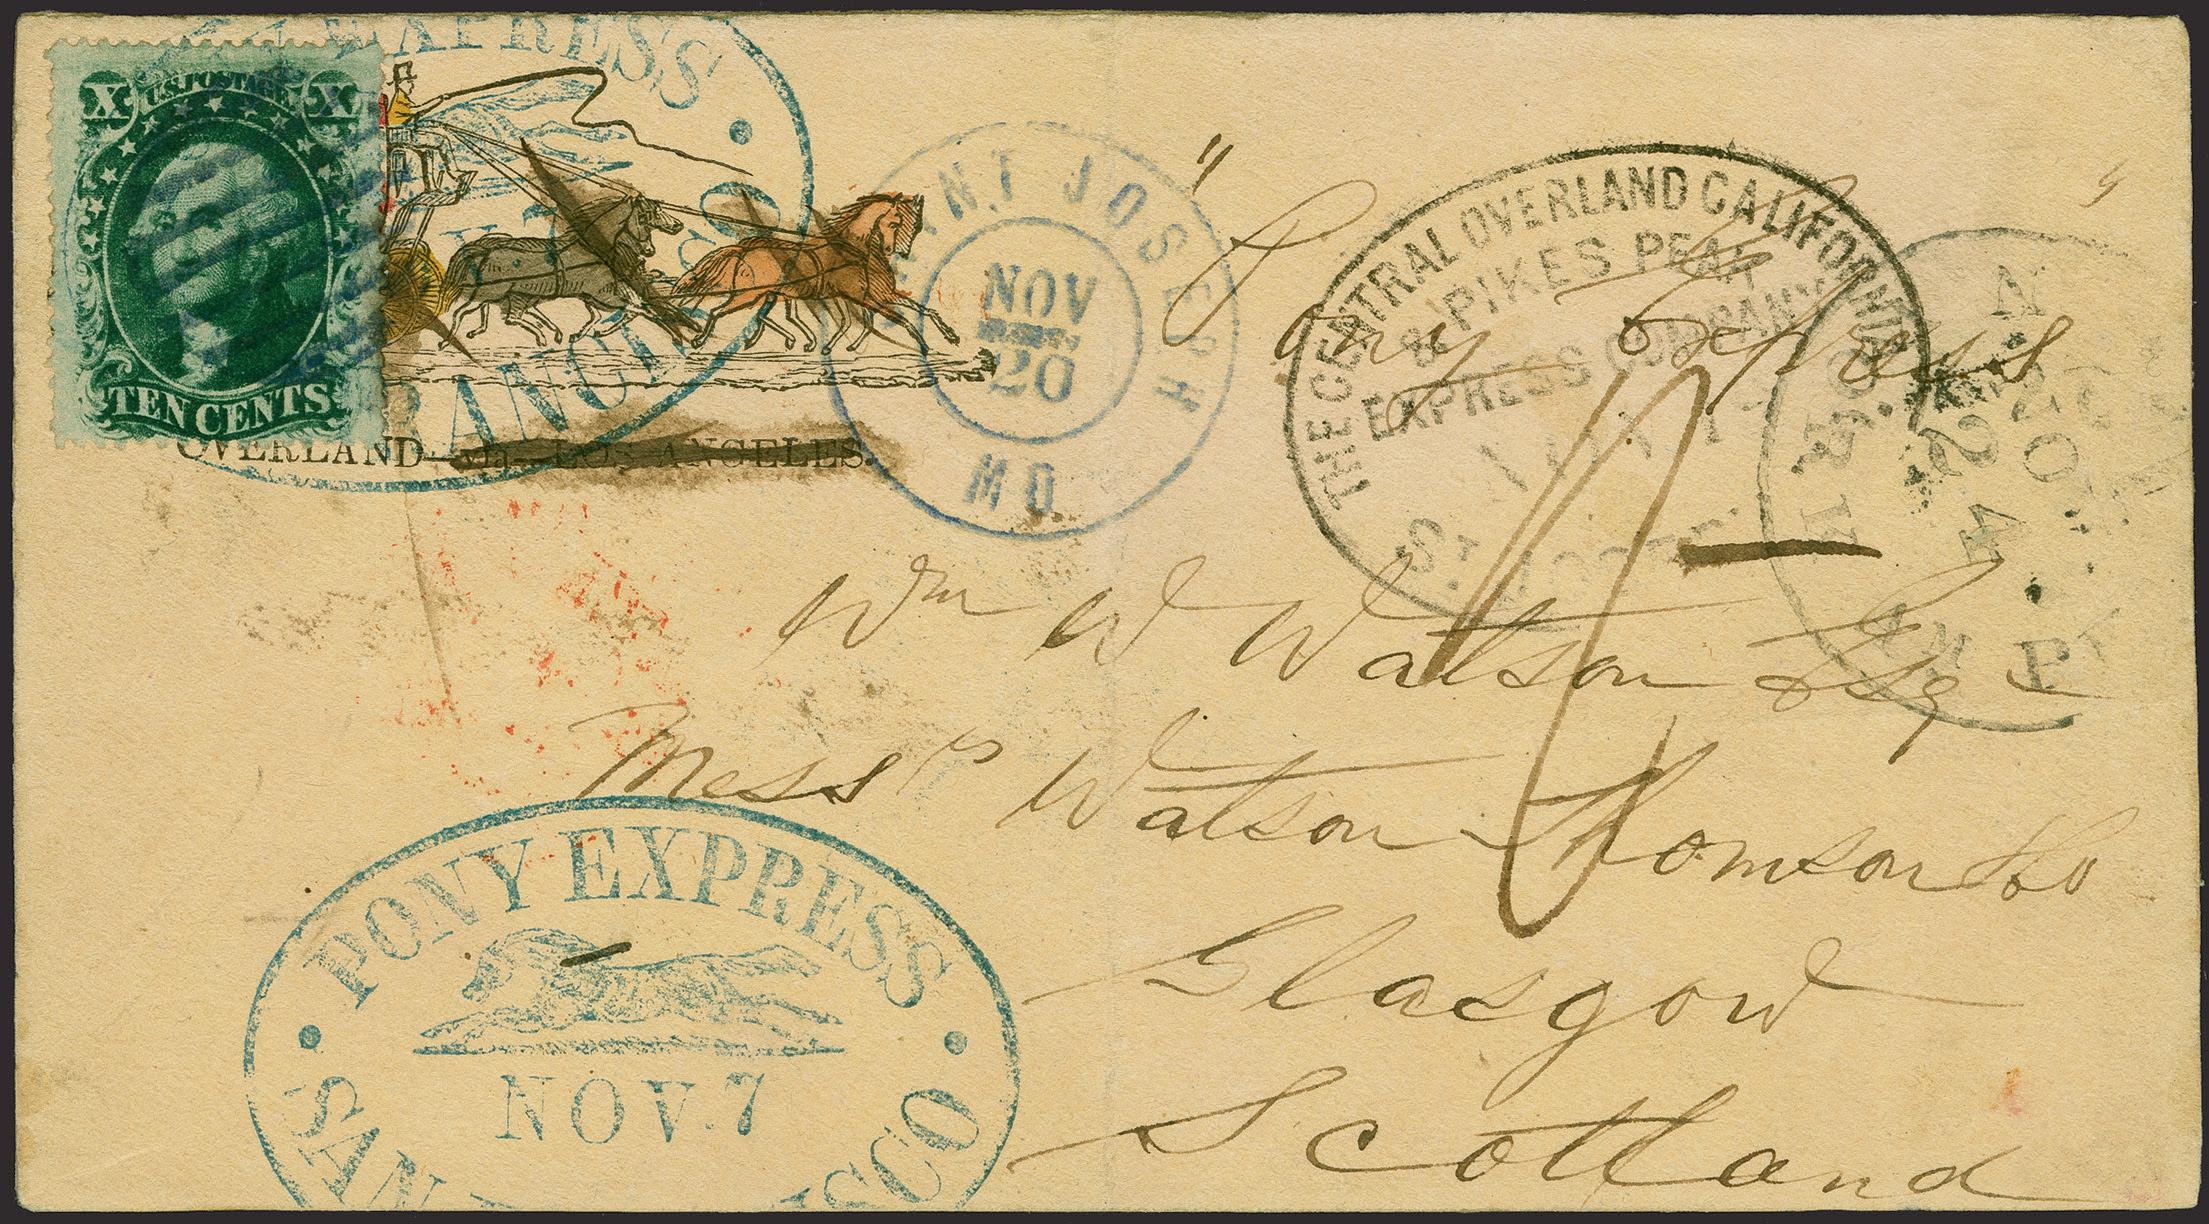 X U.S. POSTAGE. X
TEN CENTS
EXPRESS
RANCISCO
OVERLAND—via—LOS ANGELES.
SAINT JOSEPH
NOV
20
MO.
"Pony Express"
THE CENTRAL OVERLAND CALIFORNIA
& PIKES PEAK
EXPRESS COMPANY
ST. JOSEPH
N. YORK
NOV
24
AM. P
Wm W Watson Esq
Messrs Watson Thomson & Co
Glasgow
Scotland
PONY EXPRESS
NOV. 7
SAN
ISCO